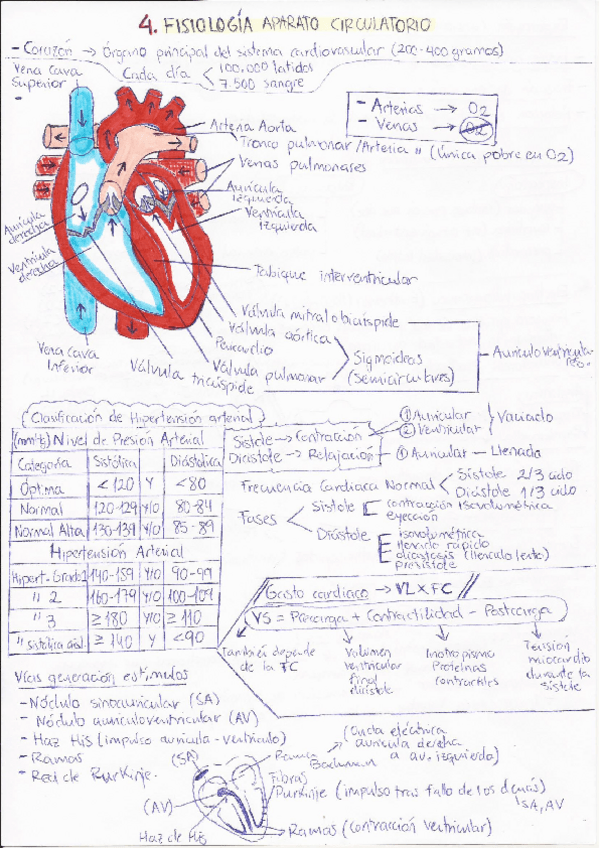 4. FISIOLOGÍA APARATO CIRCULATORIO
- Corazón → Órgano principal del sistema cardiovascular (200-400 gramos)
Cada día < 100.000 latidos
7.500 sangre
Vena Cava
Superior
- Arterias → O2
- Venas → O2
Arteria Aorta
Tronco pulmonar/Arteria " (única pobre en O2)
Venas pulmonares
Aurícula
Izquierda
Ventrícula
Izquierda
Aurícula
derecha
Ventrícula
derecha
Tabique interventricular
Válvula mitral o bicúspide
Válvula aórtica
Pericardio
Válvula pulmonar
Válvula tricúspide
Sigmoideas
(semicirculares)
Vena Cava
Inferior
(Clasificación de Hipertensión arterial)
(mmHg) Nivel de Presión Arterial
Categoría Sistólica Diástolica
Óptima < 120 y < 80
Normal 120-129 y/o 80-84
Normal Alta 130-139 y/o 85-89
Hipertensión Arterial
Hipert-Grado1 140-159 y/o 90-99
" 2 160-179 y/o 100-109
" 3 ≥ 180 y/o ≥ 110
" sistólica ≥ 140 y < 90
Sístole → Contracción
① Auricular
② Ventricular
Vaciado
Diástole → Relajación
① Auricular — Llenado
Frecuencia Cardiaca Normal < Sístole 2/3 ciclo
Diástole 1/3 ciclo
Fases
Sístole
contracción Isovolumétrica
eyección
Diástole
isovolumétrica
llenado rápido
diastasis (llenado lento)
presístole
// Gasto cardiaco → VL x FC //
VS = Precarga + Contractilidad - Postcarga
También depende
de la FC
Volumen
ventricular
final
diástole
Inotropismo
Proteínas
contráctiles
Tensión
miocardio
durante la
sístole
Vías generación estímulos
- Nódulo sinoauricular (SA)
- Nódulo auriculoventricular (AV)
- Haz His (impulso aurícula-ventrículo)
- Ramas
- Red de Purkinje.
(SA)
(AV)
Haz de His
Rama
Bachmann
(Onda eléctrica
aurícula derecha
a au. izquierda)
Fibras
Purkinje (impulso tras fallo de los demás)
SA, AV
Ramas (contracción ventricular)